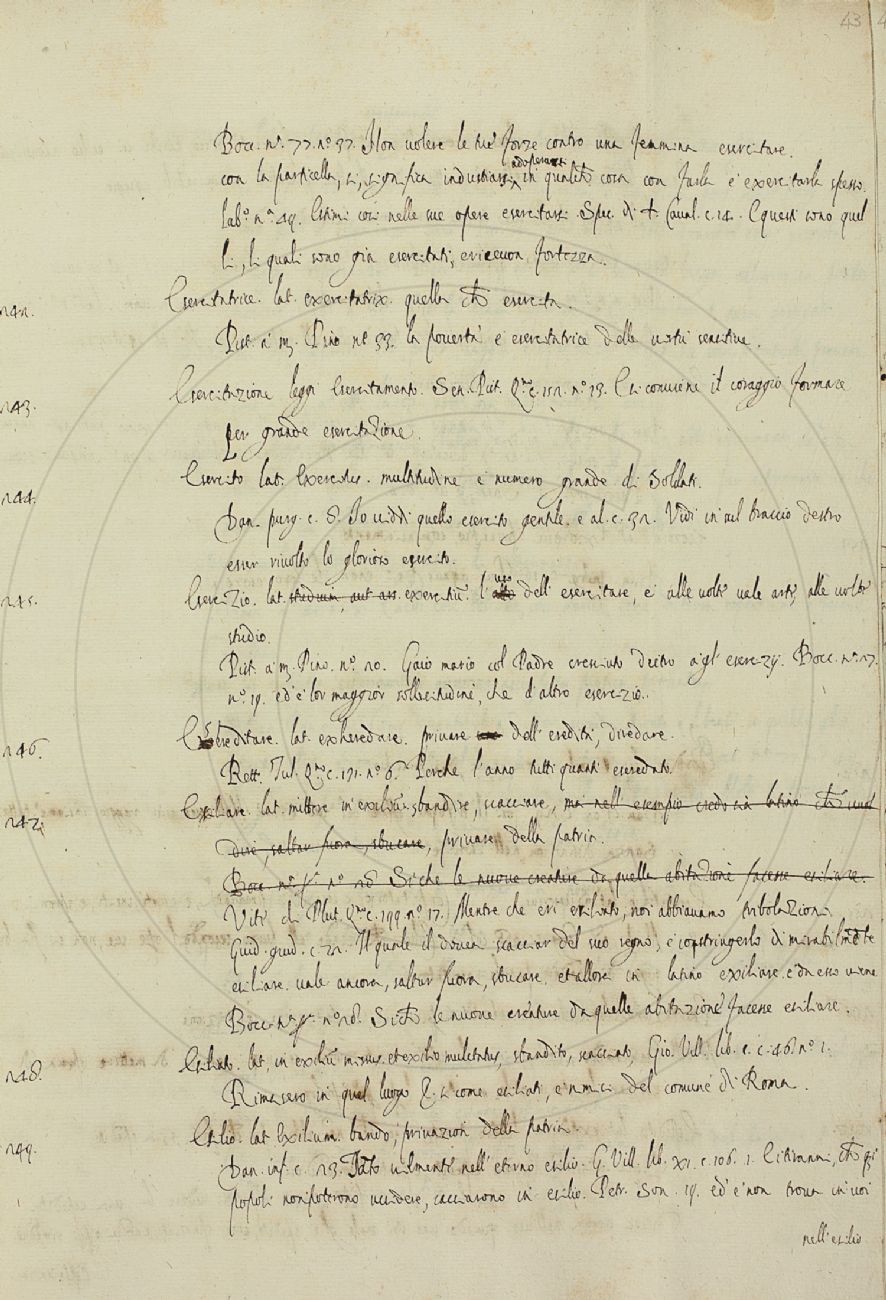 43
Bocc. nª. 77. nº 37. Non volere le tue forze contro una femmina esercitare.
adoperarsi
con la particella, si, significa industriarsi, in qualche cosa con farla e exercitarla spesso.
Lab.º n.º 49. Estimi cosi nelle sue opere esercitarsi. Spec. di +. Caual. c. 14. E questi sono quel
li, li quali sono gia esercitati, e riceuon fortezza.
Esercitatrice. lat. exercitatrix. quella che esercita.
Pist. a m. Pino nº 33. la pouertà è esercitatrice delle uertù sensitiue.
143. Esercitazione leggi Esercitamento. Sen. Pist. c. nº 13. E si conuiene il coraggio formare
per grande esercitazione.
144. Esercito lat. Exercitus. multitudine e numero grande di Soldati.
Dan. purg. c. 8. Io uiddi quello esercito gentile. e al. c. 32. Vidi in sul braccio destro
esser riuolto lo glorioso esercito.
145. Esercizio. lat. studium, aut ars. exercitiũ. l'uso dell' esercitare, e alle uolte uale arte, alle uolte
studio.
Pist. a m. Pino. nº. 20. Gaio mario col Padre cresciuto dietro agl' esercizij. Bocc. nª. 17.
nº. 19. ed' è lor maggior sollecitudine, che d'altro esercizio.
146. Esereditare. lat. exheredare. priuare dell' eredità, diredare.
Rett. Tul. c. 131. nº 6. Perche l'anno tutti quanti eseredato.
147. Esiliare. lat. mittere in exiliũ. sbandire, scacciare, ma nell' esempio credo sia latino che uuol
dire, saltar fiora, sbucare, priuare della patria.
Bocc. nº 28 Si che le nuoue creature da quelle abitazioni facesse esiliare.
Vite di Plut. c. 199. nº 17. Mentre che eri exiliato, noi abbiauamo tribolazioni.
Guid. giud. c. 21. Il quale il douea scacciar del suo regno, e costringerlo di mirabilmente
esiliare. uale ancora, saltar fuora, sbucare, et allora in latino exiliare. e da esso uiene
Bocc. nº 28. Si che le nuoue creature da quelle abitazione facesse esiliare.
148. Esiliato. lat. in exiliũ missus. et exilio mulctatus, sbandito, scacciato, Gio. Vill. lib. 1. c. 46. nº 1.
Rimasero in quel luogo si come esiliati, e inimici del comune di Roma.
149. Esilio. lat. Exilium. bando, priuazion della patria.
Dan. inf. c. 23. Tãto uilmente nell' eterno esilio. G. Vill. lib. XI. c. 108. 1. E i tiranni, che gi
popoli non poterono uccidere, cacciarono in esilio. Petr. Son. 19. ed' e' non troua in uoi
nell' esilio